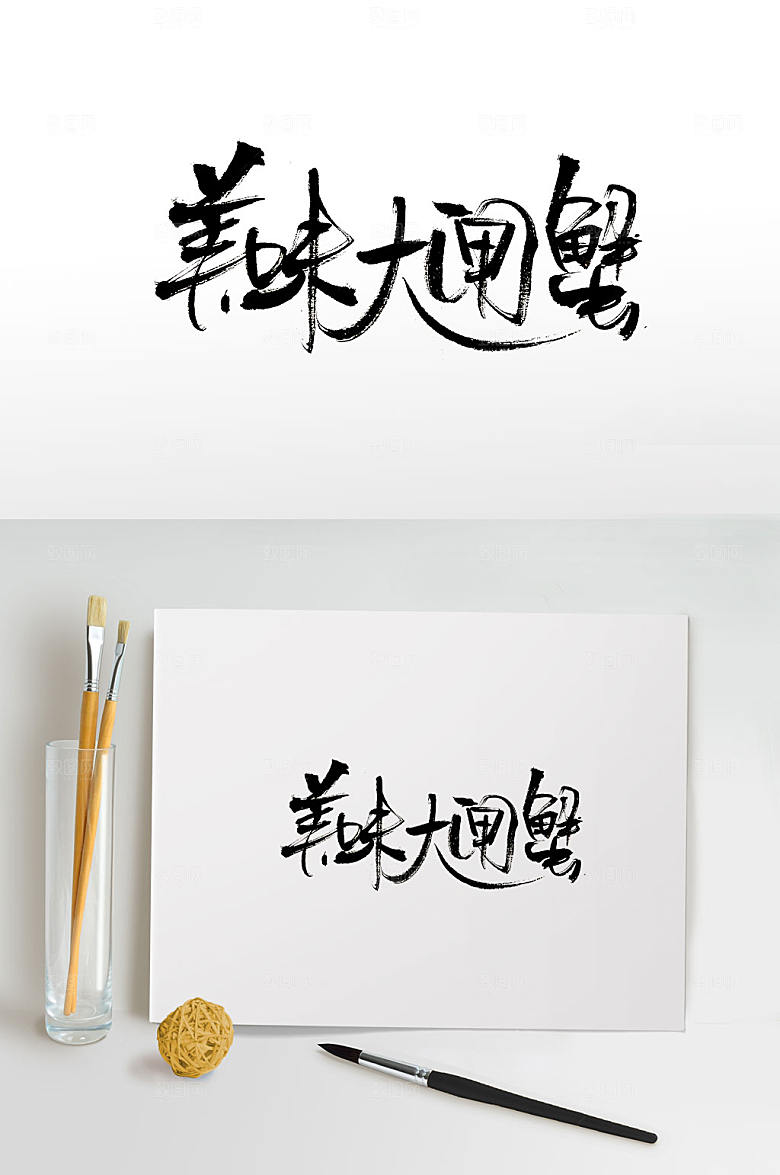 美味大闸蟹
美味大闸蟹